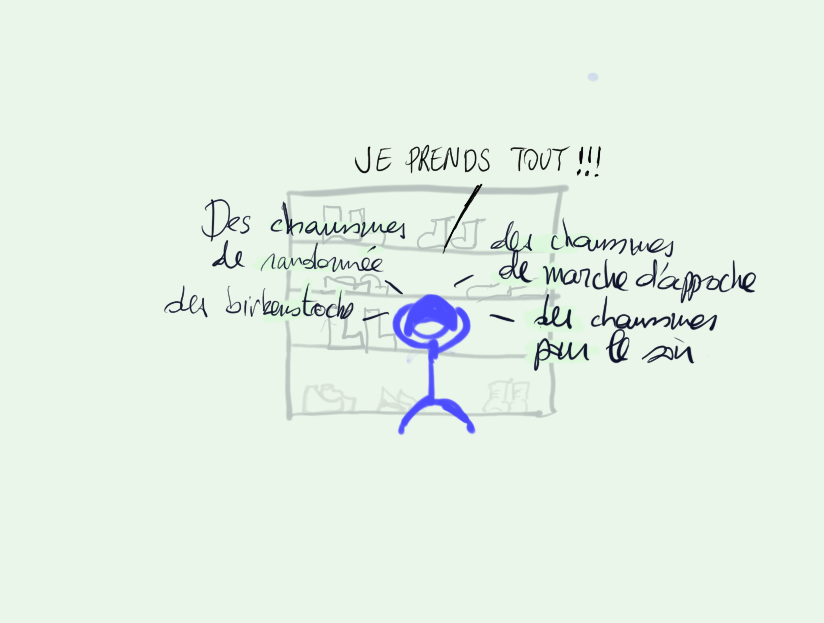 JE PRENDS TOUT !!!
Des chaussures
de randonnée
des birkenstocks
des chaussures
de marche d'approche
des chaussures
pour le soir